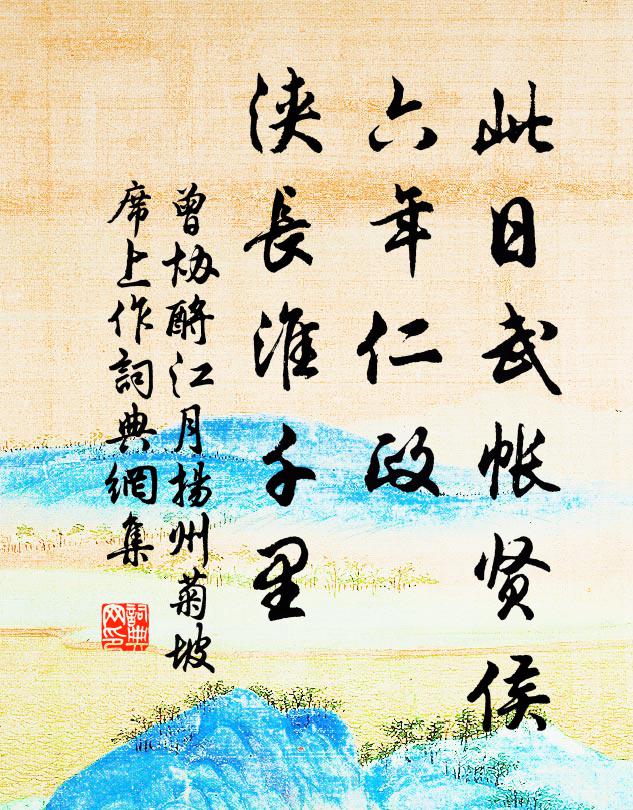 此日武帐贤侯
六年仁政
浃長淮千里
曾协酹江月揚州菊坡
席上作詞典網集
詞典网印